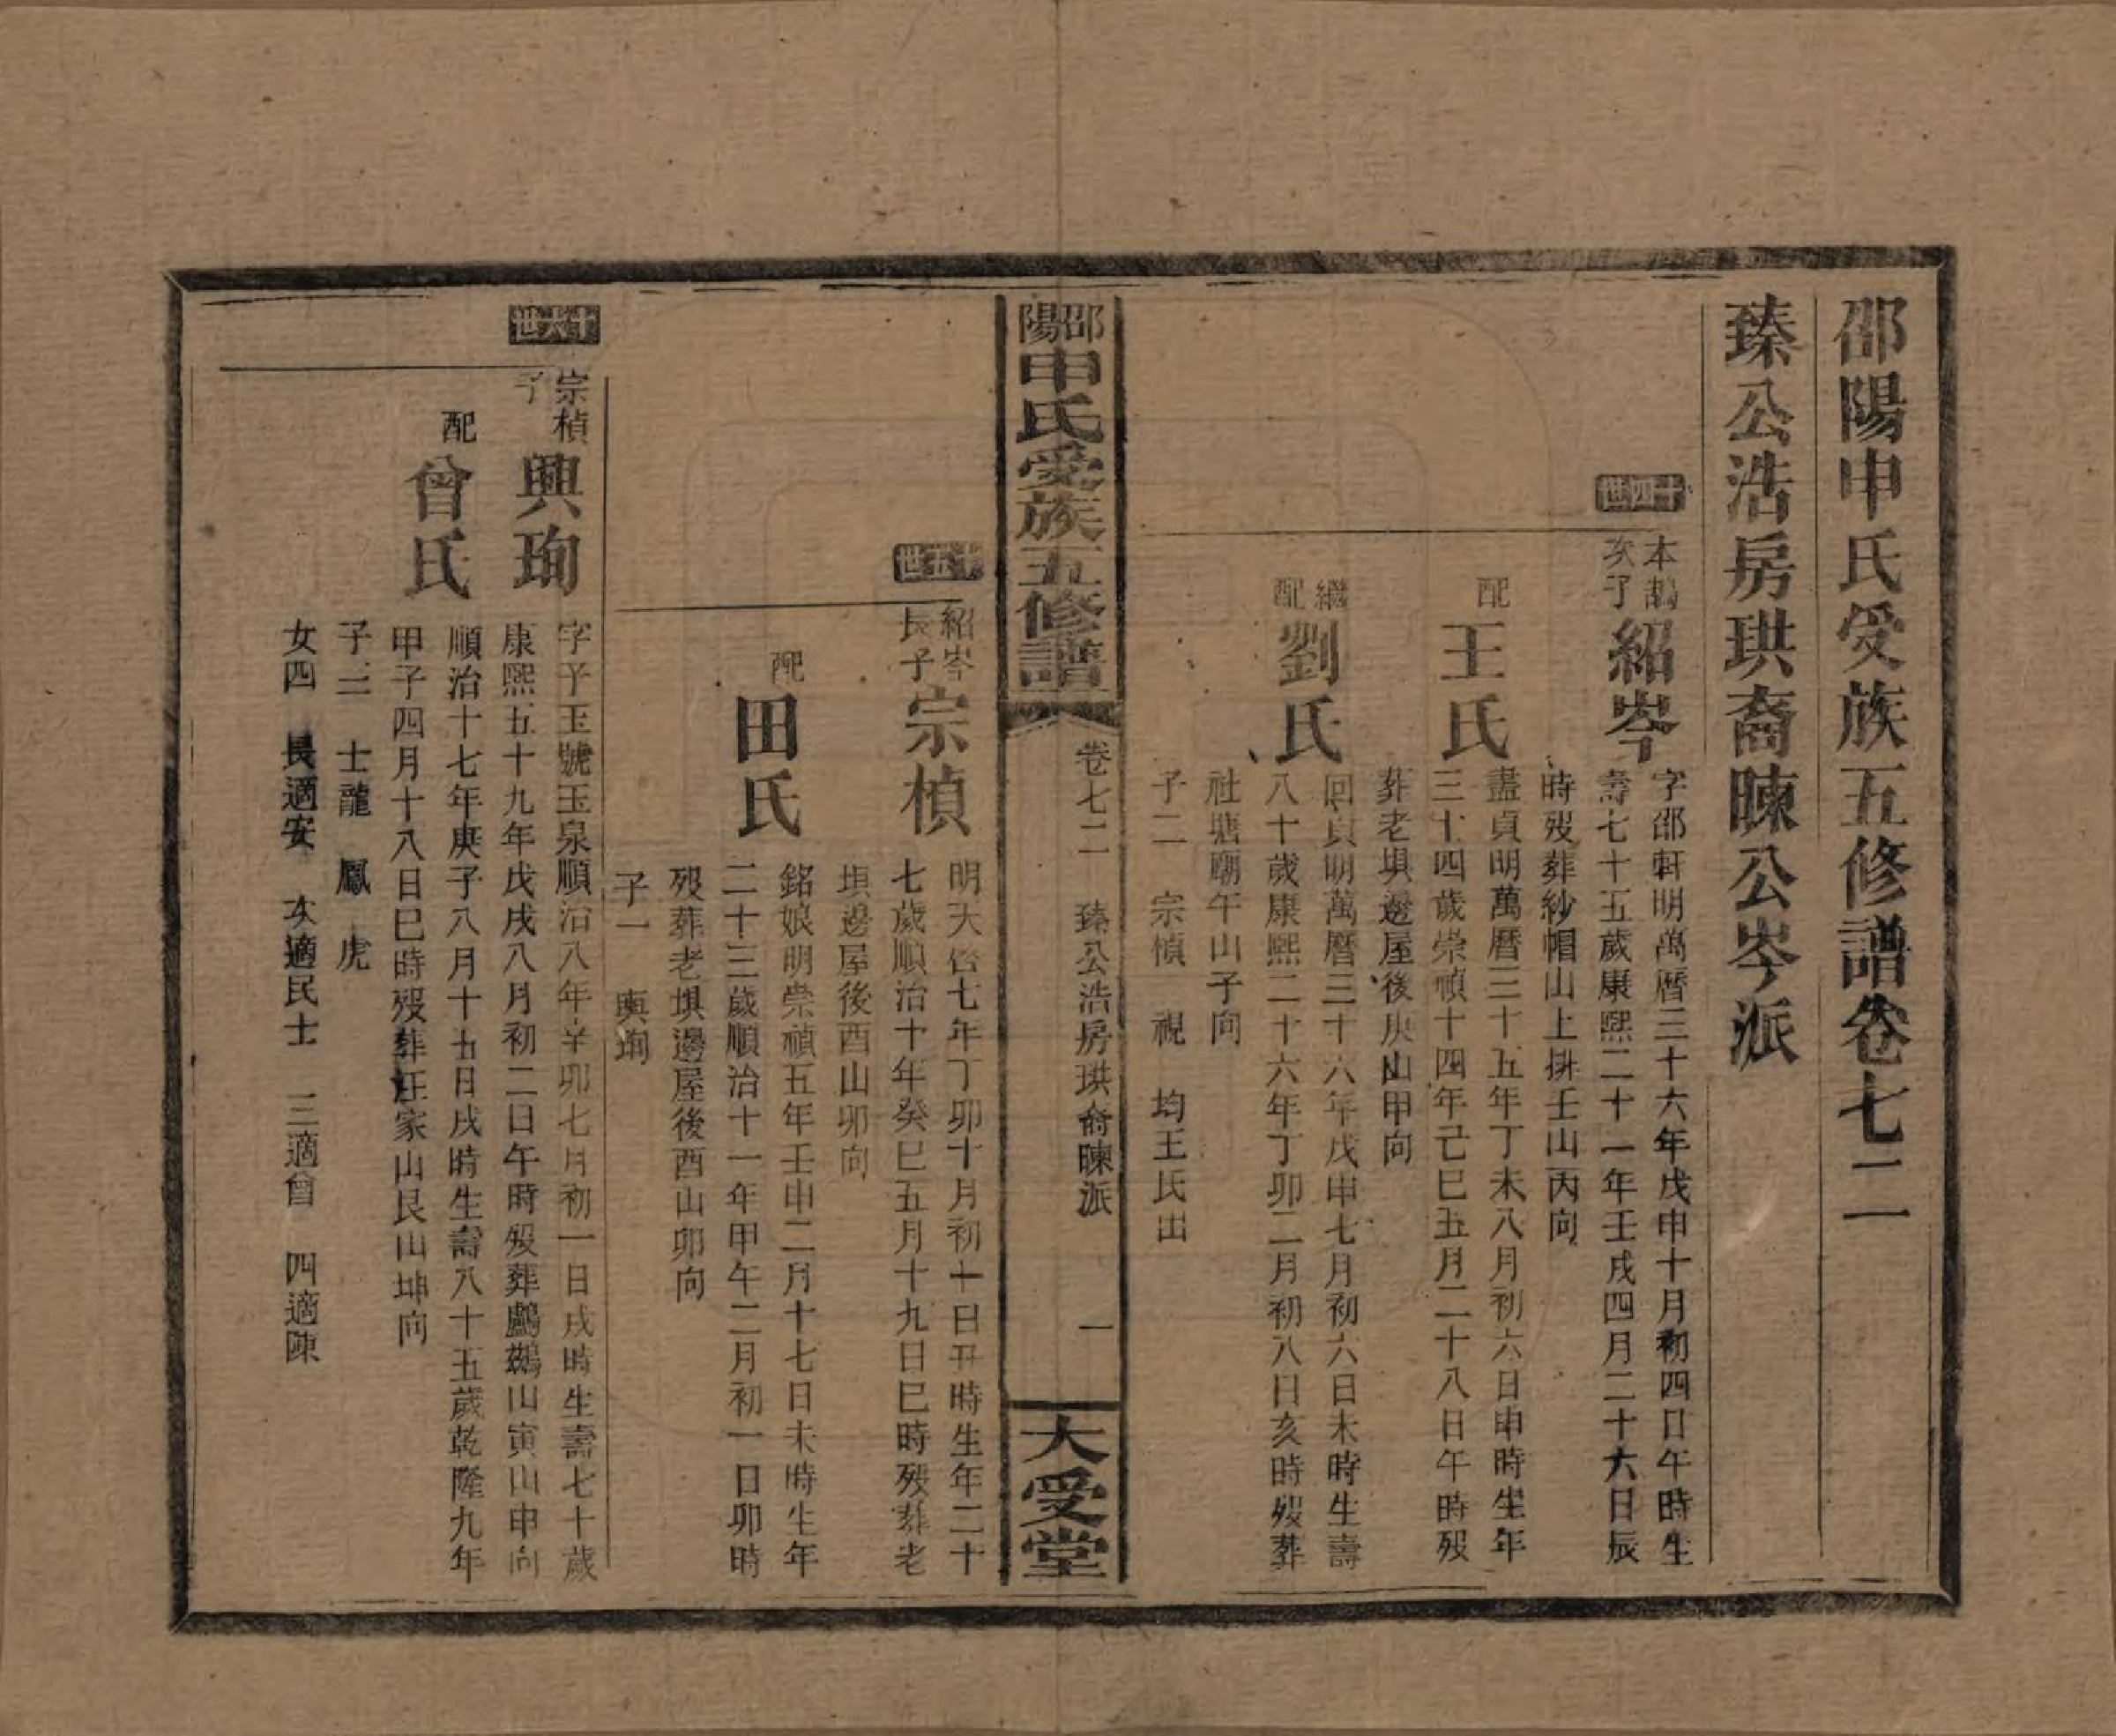 邵陽申氏受族五修譜卷七二
臻公浩房珙裔暕公岑派
十四世
本鵲次子
紹岑
字邵軒明萬曆三十六年戊申十月初四日午時生
壽七十五歲康熙二十一年壬戌四月二十六日辰
時歿葬紗帽山上排壬山丙向
配
王氏
盡貞明萬曆三十五年丁未八月初六日申時生年
三十四歲崇禎十四年己巳五月二十八日午時歿
葬老塤邊屋後庚山甲向
繼配
劉氏
回貞明萬曆三十六年戊申七月初六日未時生壽
八十歲康熙二十六年丁卯二月初八日亥時歿葬
社塘廟午山子向
子二 宗禎 視 均王氏出
邵陽申氏受族五修譜
卷七二 臻公浩房珙裔暕派 一
大受堂
十五世
紹岑長子
宗楨
明天啓七年丁卯十月初十日丑時生年二十
七歲順治十年癸巳五月十九日巳時歿葬老
塤邊屋後酉山卯向
配
田氏
銘娘明崇禎五年壬申二月十七日未時生年
二十三歲順治十一年甲午二月初一日卯時
歿葬老塤邊屋後酉山卯向
子一 興珣
十六世
宗楨子
興珣
字予玉號玉泉順治八年辛卯七月初一日戌時生壽七十歲
康熙五十九年戊戌八月初二日午時歿葬鸕鷀山寅山申向
配
曾氏
順治十七年庚子八月十五日戌時生壽八十五歲乾隆九年
甲子四月十八日巳時歿葬汪家山艮山坤向
子三 士龍 鳳 虎
女四 長適安 次適民士 三適曾 四適陳